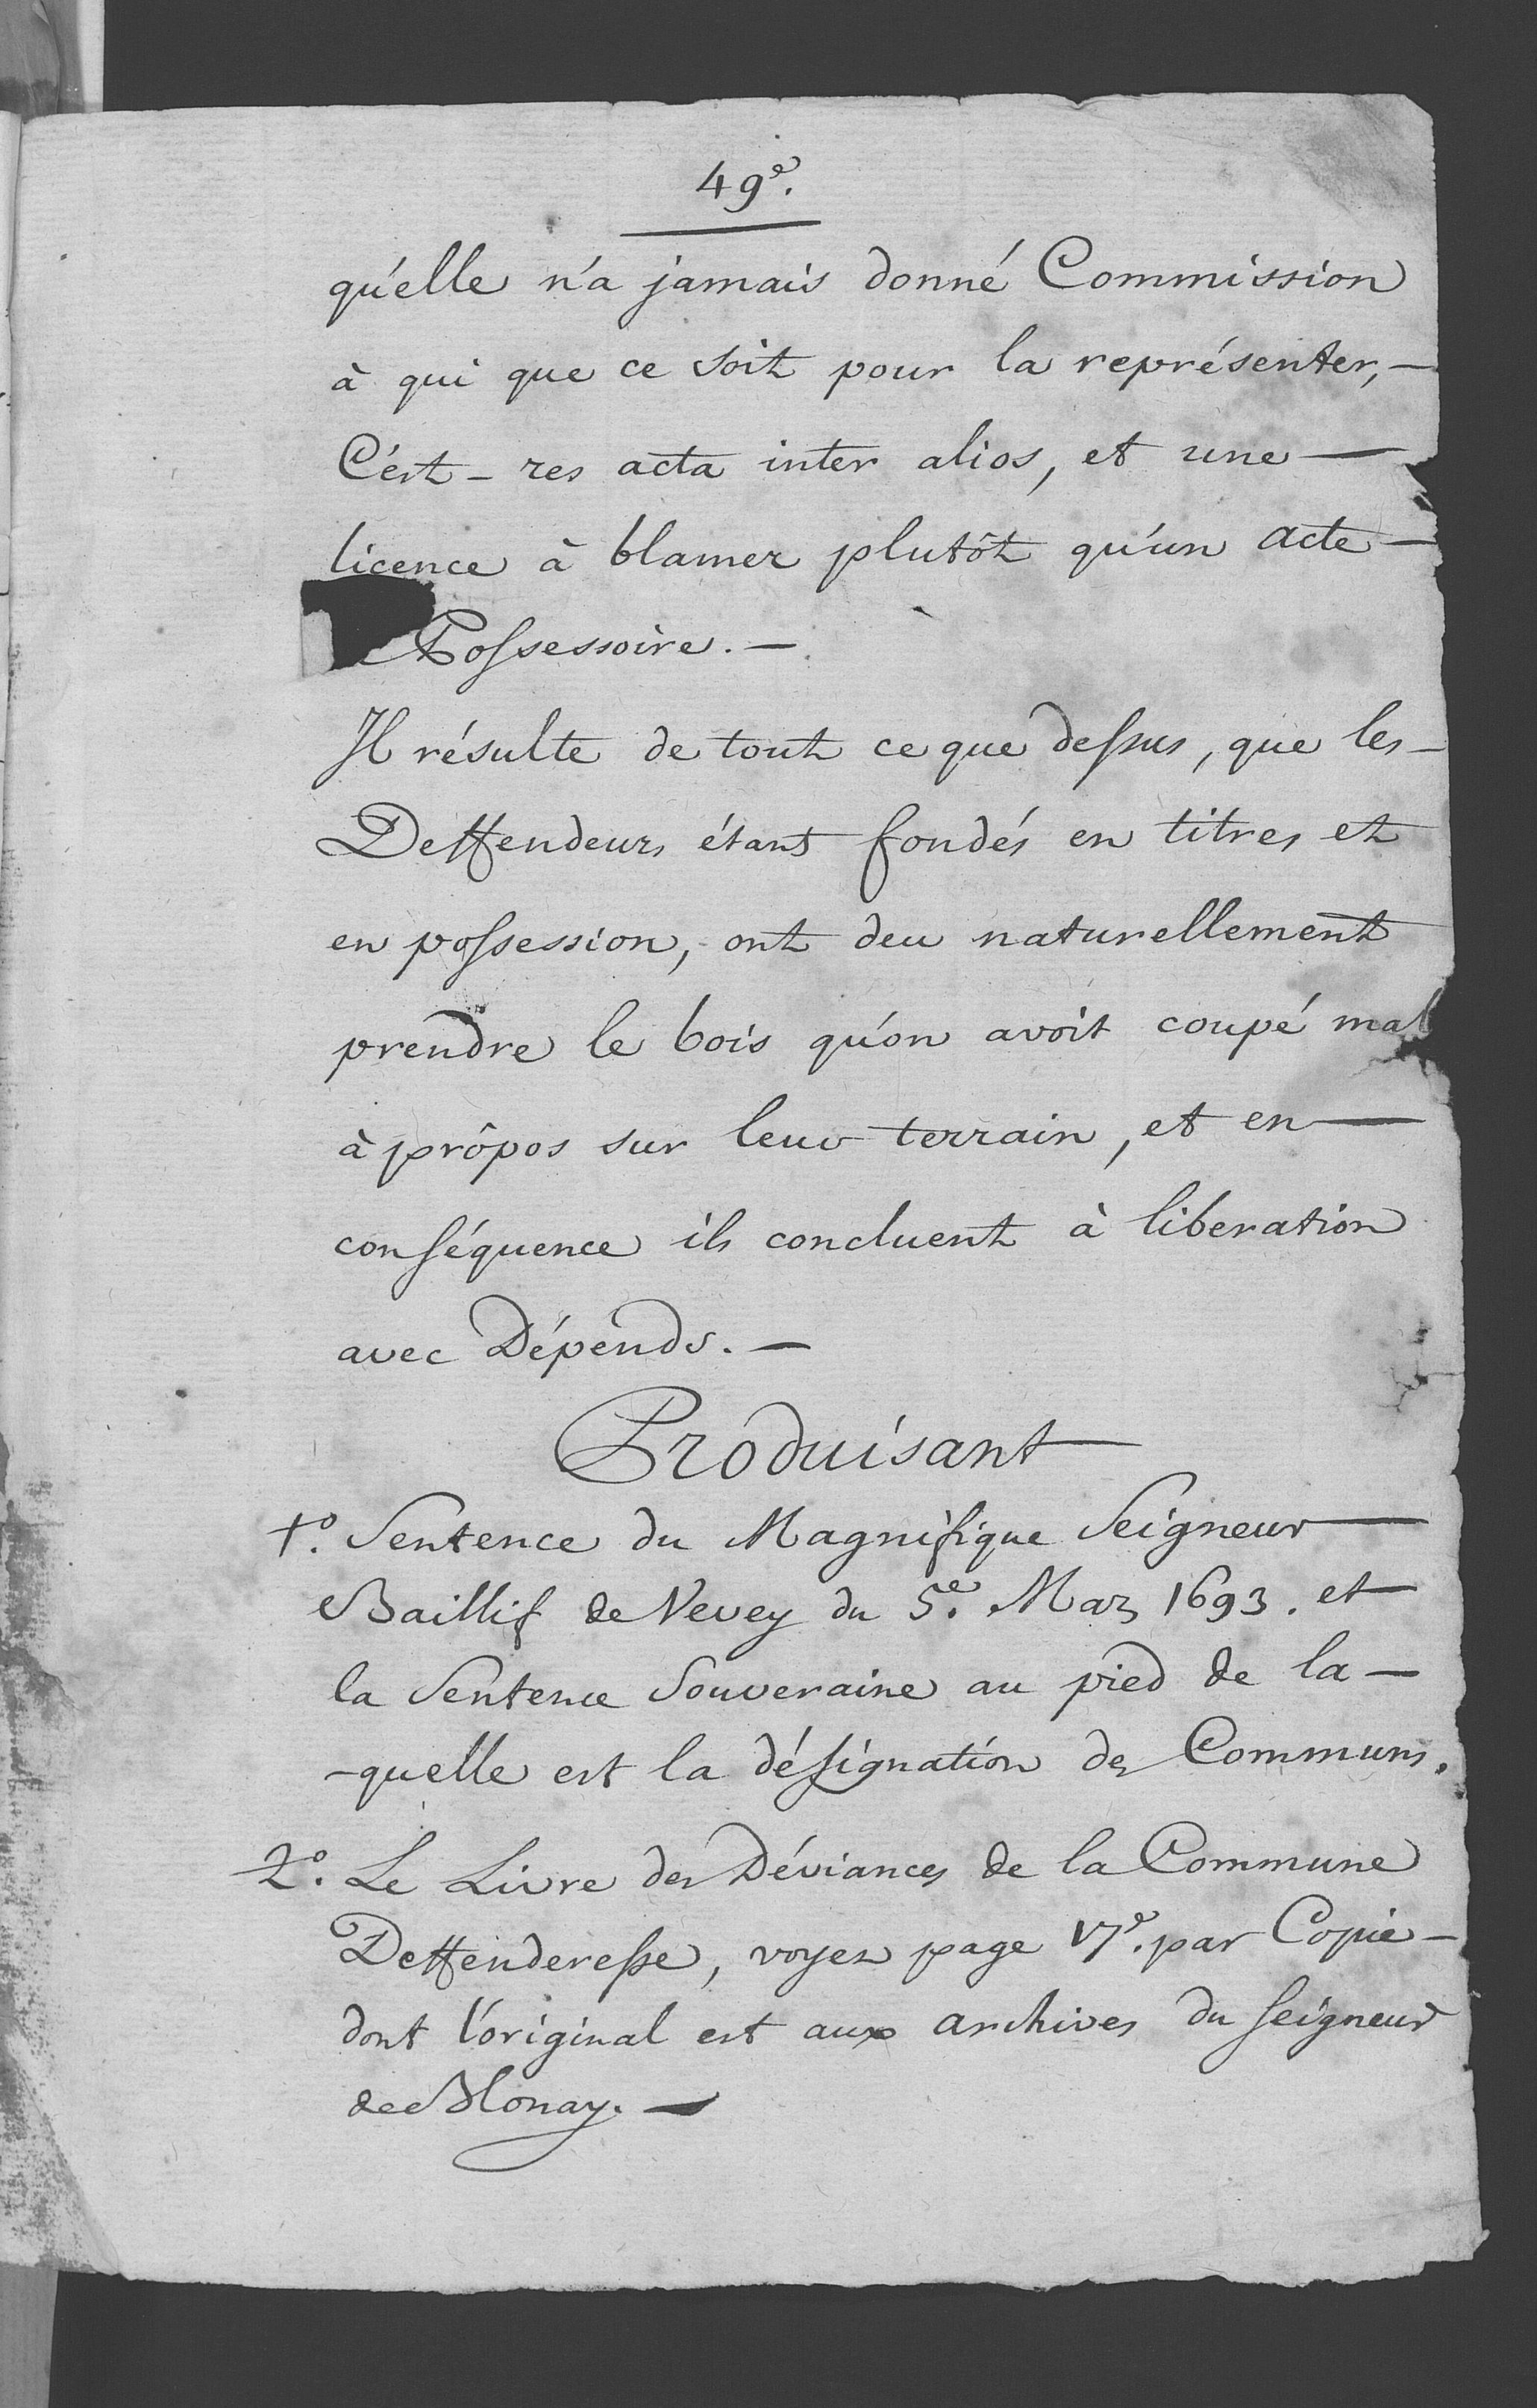 49e.
qu'elle n'a jamais donné Commission
à qui que ce soit pour la représenter, —
C'est - res acta inter alios, et une —
licence à blamer plutôt qu'un acte —
Possessoire. —
Il résulte de tout ce que dessus, que les —
Deffendeurs étant fondés en titres et
en possession, ont deu naturellement
prendre le bois qu'on avoit coupé mal
à prôpos sur leur terrain, et en —
conséquence ils concluent à liberation
avec Dépends. —
Produisant
1o. Sentence du Magnifique Seigneur —
Baillif de Vevey du 5e. Mars 1693. et
la Sentence Souveraine au pied de la —
-quelle est la désignation des Communs.
2o. Le Livre des Déviances de la Commune
Deffenderesse, voyez page 17e. par Copie —
dont l'original est aux archives du Seigneur
de Blonay. —